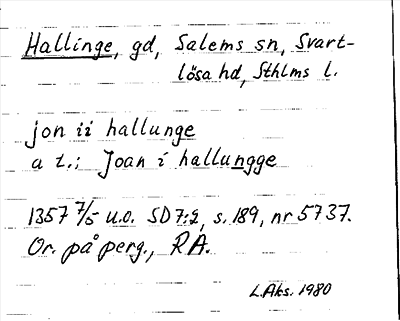 Hallinge, gd, Salems sn, Svart-
lösa hd, Sthlms l.
jon ii hallunge
a t.: Joan i hallungge
1357 7/5 u.o. SD 7:2, s. 189, nr 5737.
Or. på perg., RA.
L.Aks. 1980